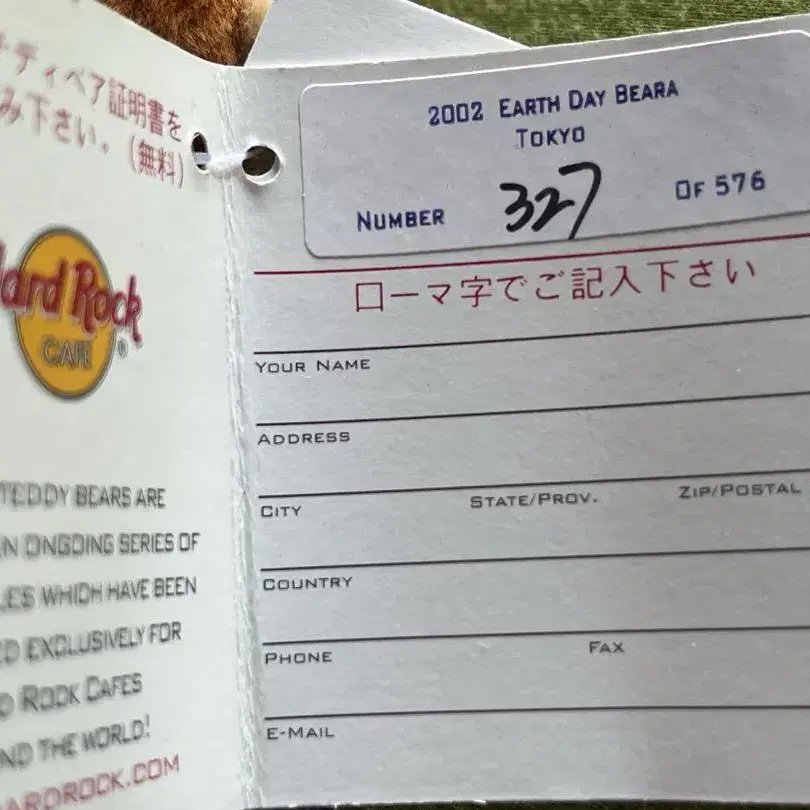 ディベア証明書を
み下さい。(無料)
Hard Rock
CAFE
®
TEDDY BEARS ARE
N ONGOING SERIES OF
LES WHICH HAVE BEEN
ED EXCLUSIVELY FOR
D ROCK CAFES
ND THE WORLD!
ARDROCK.COM
2002 EARTH DAY BEARA
TOKYO
NUMBER 327 OF 576
ローマ字でご記入下さい
YOUR NAME
ADDRESS
CITY STATE/PROV. ZIP/POSTAL
COUNTRY
PHONE FAX
E-MAIL